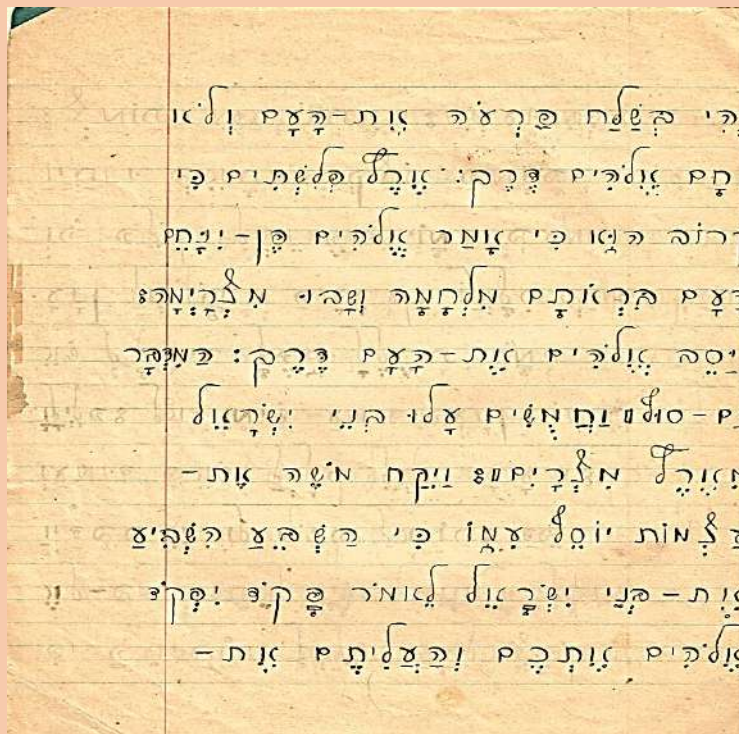 הִי בְּשַׁלַּח פַּרְעֹה אֶת-הָעָם וְלֹא
חָם אֱלֹהִים דֶּרֶךְ: אֶרֶץ פְּלִשְׁתִּים כִּי
קָרוֹב הוּא כִּי אָמַר אֱלֹהִים פֶּן-יִנָּחֵם
הָעָם בִּרְאֹתָם מִלְחָמָה וְשָׁבוּ מִצְרָיְמָה:
יַּסֵּב אֱלֹהִים אֶת-הָעָם דֶּרֶךְ: הַמִּדְבָּר
ם-סוּף וַחֲמֻשִׁים עָלוּ בְנֵי יִשְׂרָאֵל
מֵאֶרֶץ מִצְרָיִם: וַיִּקַּח מֹשֶׁה אֶת-
עַצְמוֹת יוֹסֵף עִמּוֹ כִּי הַשְׁבֵּעַ הִשְׁבִּיעַ
אֶת-בְּנֵי יִשְׂרָאֵל לֵאמֹר פָּקֹד יִפְקֹד
אֱלֹהִים אֶתְכֶם וְהַעֲלִיתֶם אֶת-